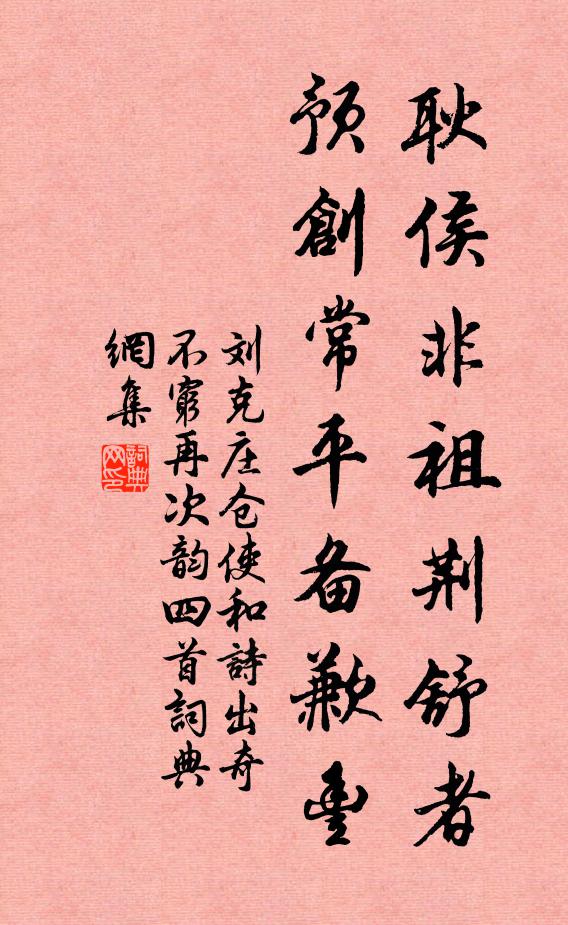 耿侯非祖荆舒者
預創常平备歉豊
刘克庄仓使和詩出奇
不窮再次韵四首詞典
網集
詞典网印